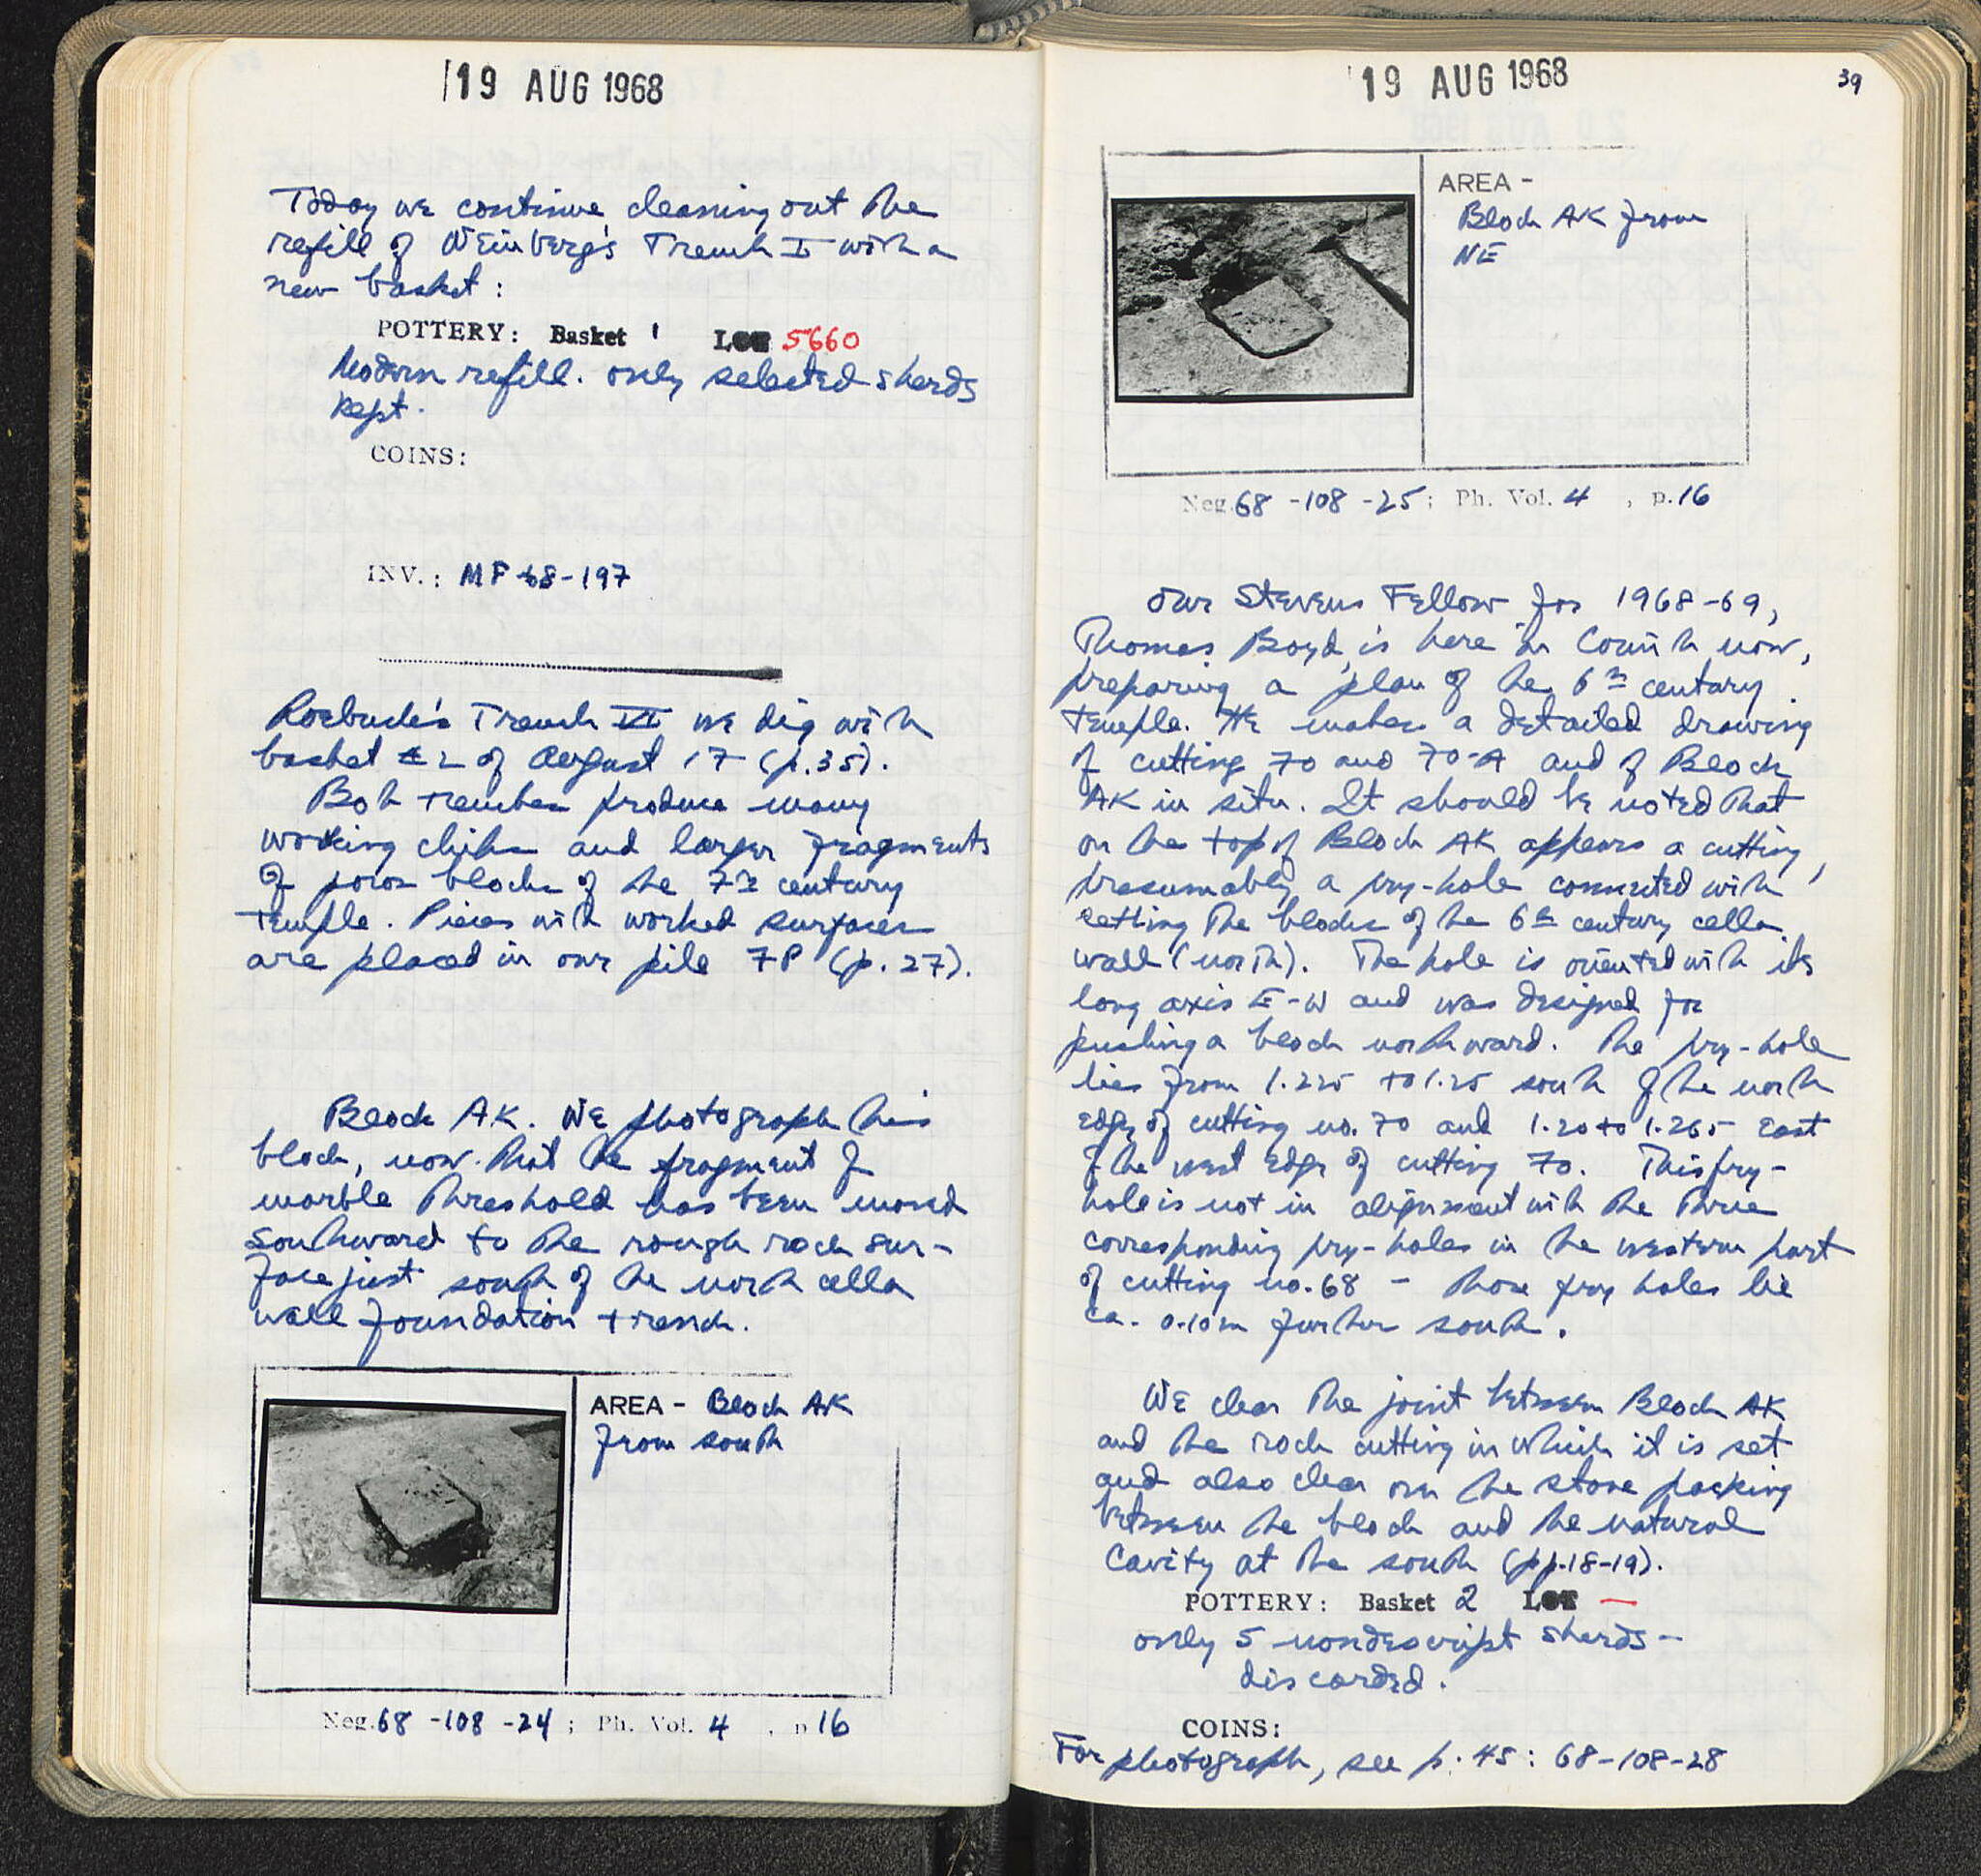 19 AUG 1968
Today we continue cleaning out the
refill of Weinberg's Trench I with a
new basket:
POTTERY: Basket 1 LOT 5660
Modern refill. only selected sherds
kept.
COINS:
INV.: MF 68-197
Roebuck's Trench VI we dig with
basket #2 of August 17 (p.35).
Both trenches produce many
working chips and larger fragments
of poros blocks of the 7th century
temple. Pieces with worked surfaces
are placed in our pile 7P (p. 27).
Block AK. We photograph this
block, now that the fragment of
marble threshold has been moved
southward to the rough rock sur-
face just south of the north cella
wall foundation trench.
AREA - Block AK
from south
Neg. 68 -108 -24 ; Ph. Vol. 4 , p 16
19 AUG 1968
39
AREA -
Block AK from
NE
Neg. 68 -108 -25 ; Ph. Vol. 4 , p. 16
Our Stevens Fellow for 1968-69,
Thomas Boyd, is here in Corinth now,
preparing a plan of the 6th century
temple. He makes a detailed drawing
of cutting 70 and 70-A and of Block
AK in situ. It should be noted that
on the top of Block AK appears a cutting,
presumably a pry-hole connected with
setting the blocks of the 6th century cella
wall (north). The hole is oriented with its
long axis E-W and was designed for
pushing a block northward. The pry-hole
lies from 1.225 to 1.25 south of the north
edge of cutting no. 70 and 1.20 to 1.265 east
of the west edge of cutting 70. This pry-
hole is not in alignment with the three
corresponding pry-holes in the western part
of cutting no. 68 - those pry holes lie
ca. 0.10m further south.
We clear the joint between Block AK
and the rock cutting in which it is set
and also clear out the stone packing
between the block and the natural
cavity at the south (pp. 18-19).
POTTERY: Basket 2 LOT —
only 5 nondescript sherds -
discarded.
COINS:
For photograph, see p. 45: 68-108-28